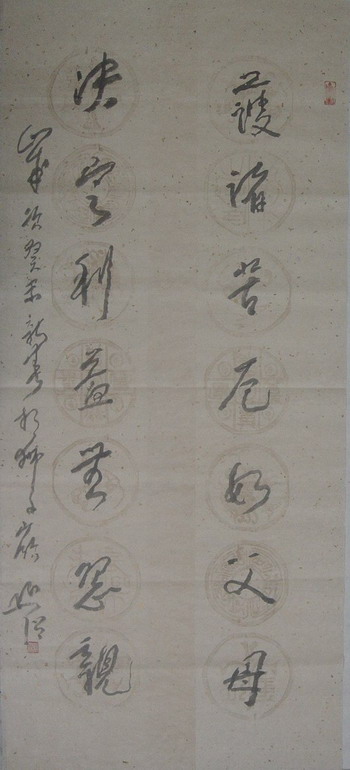 護諸苦厄如父母
決定利益無怨親
歲次癸未新春於獅子巖